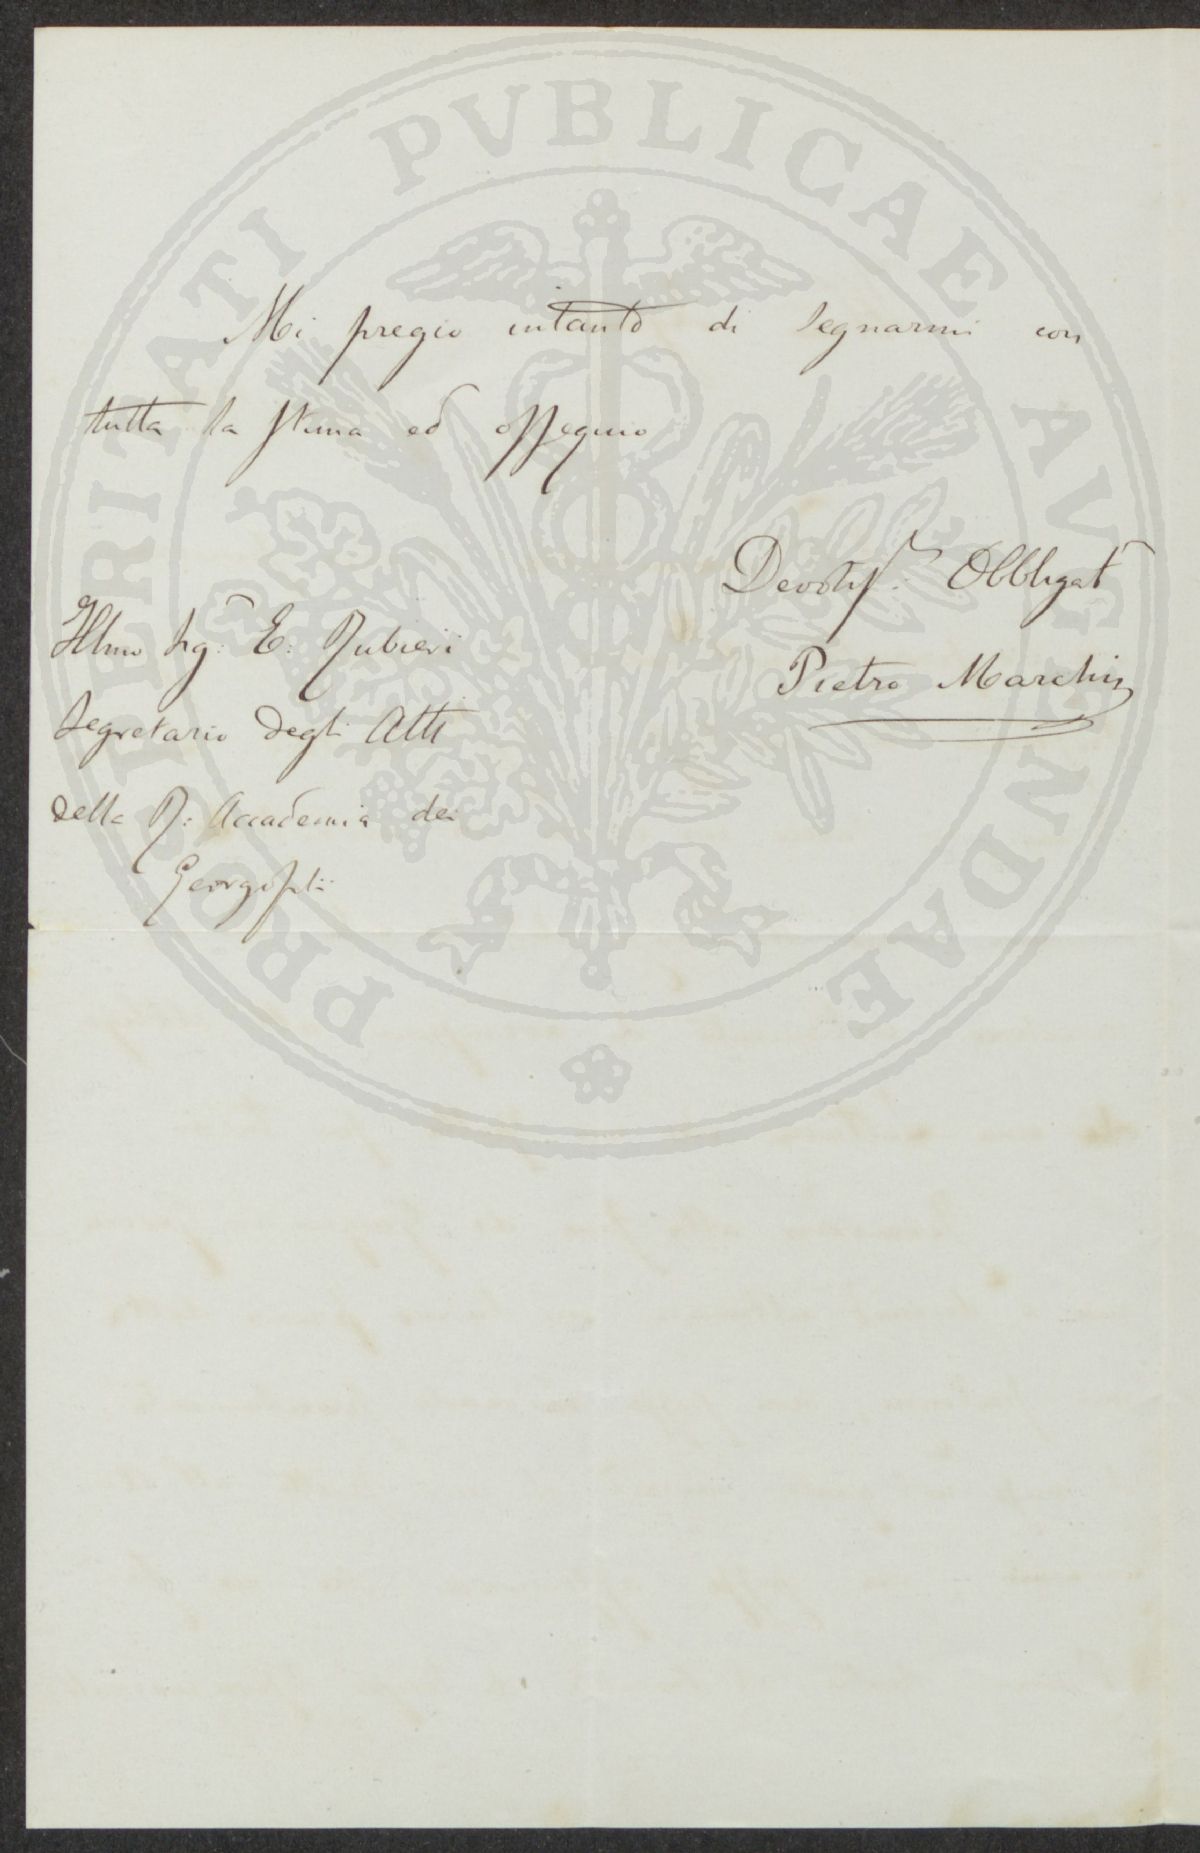 PROSPERITATI PVBLICAE AVGENDAE
Mi pregio intanto di segnarmi con
tutta la stima ed ossequio
Devotis. Obbligat
Pietro Marchi
Illmo Sig: E: Rubieri
Segretario degli Atti
della R: Accademia dei
Georgofili